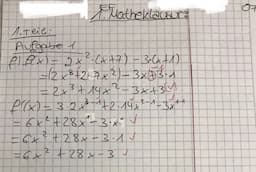 1. Matheklausur
1. Teil:
Aufgabe 1
f(x) = 2x²·(x+7) - 3·(x+1)
= (2x³+2·7x²) - 3x+3·1
= 2x³ + 14x² - 3x+3
f'(x) = 3·2x³⁻¹+2·14x²⁻¹-3x¹⁻¹
= 6x² + 28x¹ - 3·x⁰
= 6x² + 28x - 3·1
= 6x² + 28x - 3